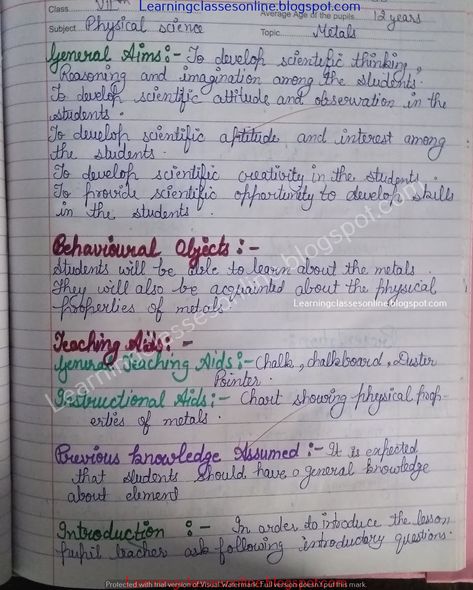 Learningclassesonline.blogspot.com
Class VIIth
Average Age of the pupils 12 years
Subject Physical science
Topic Metals
General Aims:- To develop scientific thinking,
Reasoning and imagination among the students.
To develop scientific attitude and observation in the
students.
To develop scientific aptitude and interest among
the students.
To develop scientific creativity in the students.
To provide scientific opportunity to develop skills
in the students.
Behavioural Objects:-
Students will be able to learn about the metals.
They will also be acquainted about the physical
properties of metals.
Learningclassesonline.blogspot.com
Teaching Aids:-
General Teaching Aids:- Chalk, chalkboard, Duster
Pointer.
Instructional Aids:- Chart showing physical prop-
erties of metals.
Previous Knowledge Assumed:- It is expected
that students should have a general knowledge
about element
Introduction:- In order to introduce the lesson
pupil teacher ask following introductory questions.
Learningclassesonline.blogspot.com
Protected with trial version of Visual Watermark. Full version doesn't put this mark.